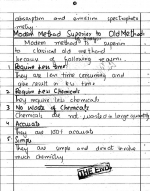 absorption and emission spectrophoto
metry
Modern Method Superior to Old Methods
Modern method is superior
to classical old method
because of following reasons.
1 Require less time:
They are less time consuming and
give result in few time.
2 Require less chemicals
They require less chemicals
3 No Waste of Chemicals
Chemicals are not wasted in large quantity
4 Accurate
They are 100% accurate
5 Simple
They are simple and donot involve
much chemistry
The End